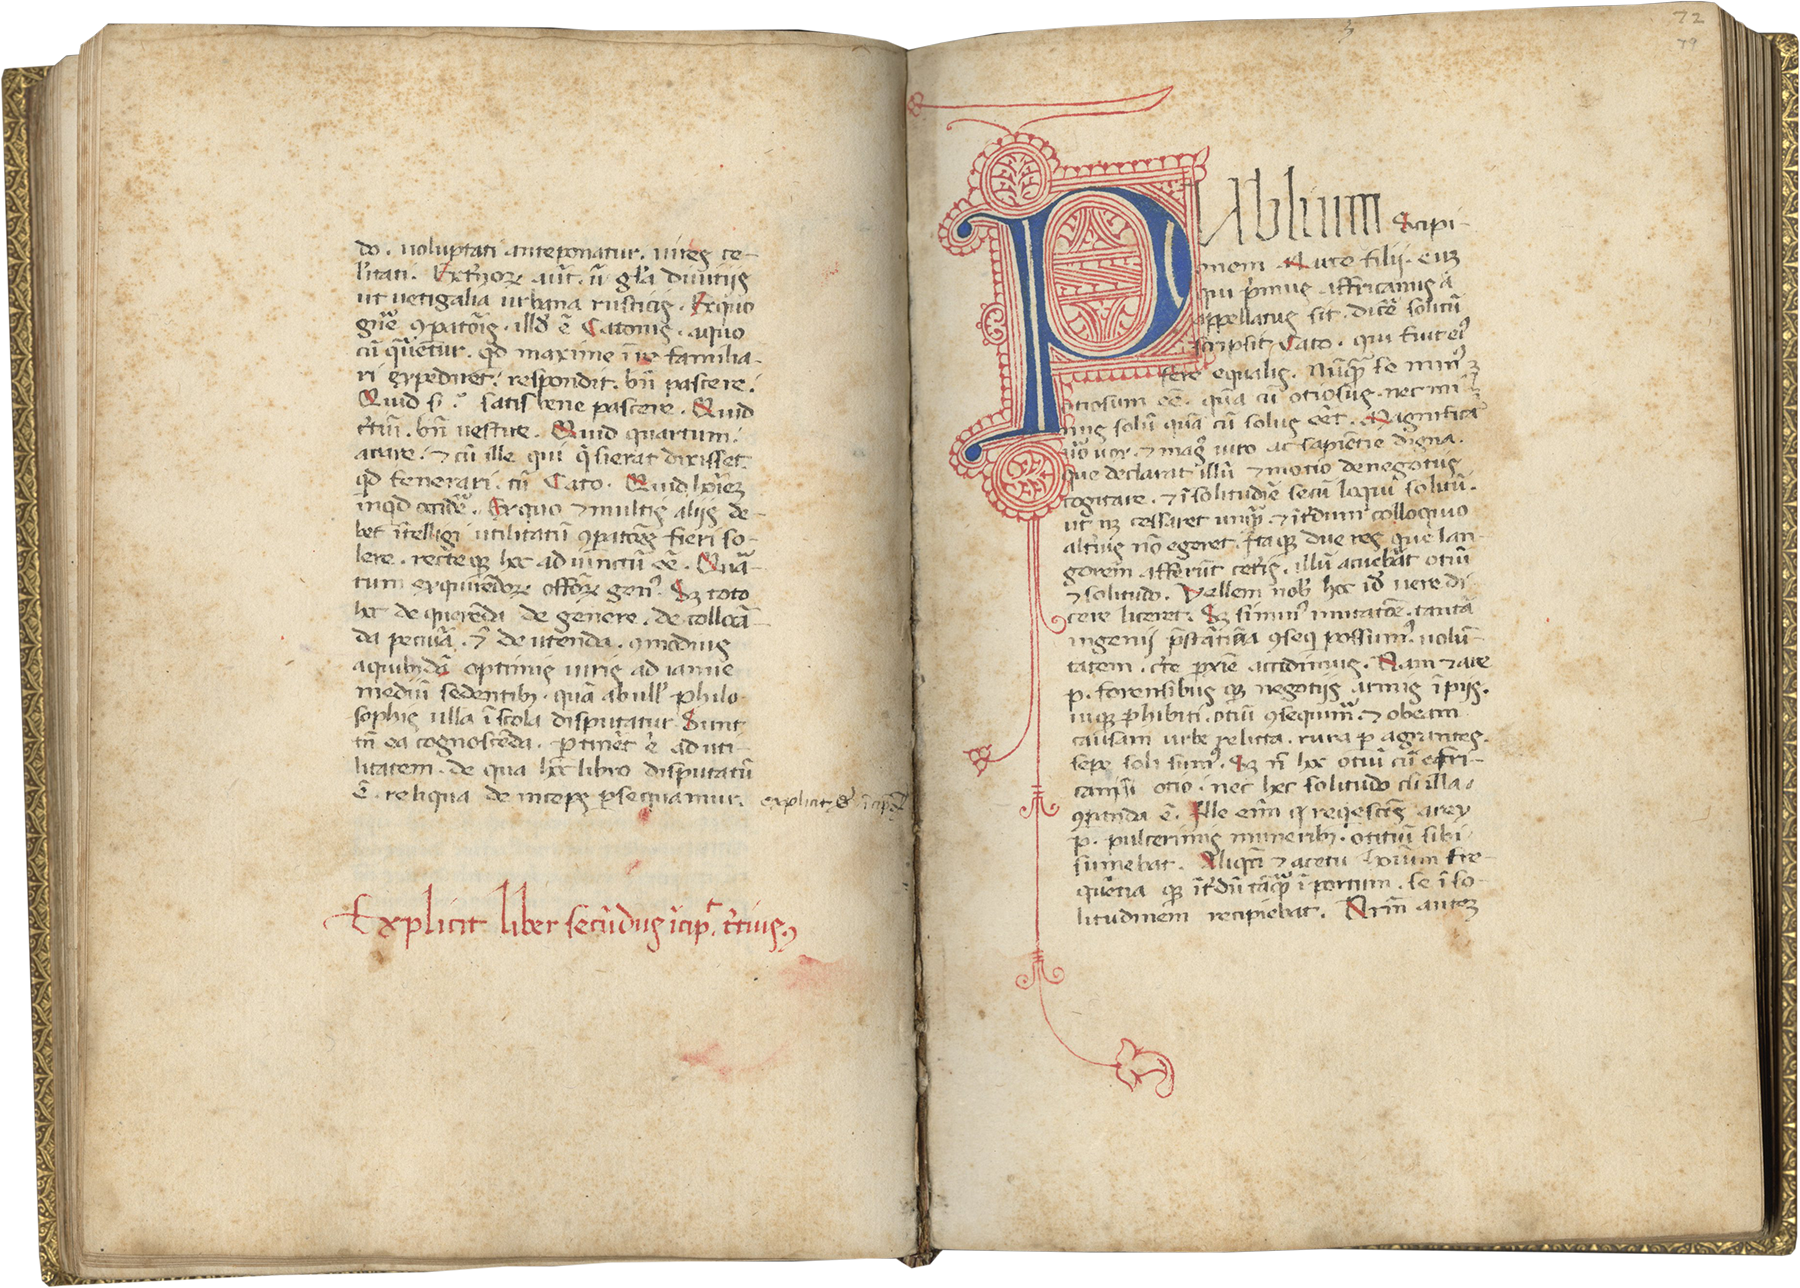 do. voluptati anteponatur. vires ce-
l'itati. Ext'iorꝝ aūt. ū gl'a divitijs
ut vetigalia urbana rusticis. Exquo
gn̄e ꝯpatōis. illd' ē Catonis. aquo
cū q̄reretur. qd maxime ī re familia-
ri expediret. respondit. bn̄ pascere.
Quid s. satis bene pascere. Quid
t'tiū. bn̄ vestire. Quid quartum.
arare. ⁊ cū ille qui q̄sierat dixisset.
qd fenerari. tū Cato. Quid
inqd occidē. Ex quo ⁊ multis alijs de-
bet ītelligi utilitatū ꝯpatōes fieri so-
lere. recteqꝫ hoc adiunctū eē. Quā-
tum exquirēdorꝝ officiorꝝ genꝰ. Sꝫ toto
hoc de querēda de genere. de collocā-
da pecuīa. ⁊ de utenda. ꝯmodius
aquibusdā optimis viris ad ianue
mediū sedentibꝫ. quā abull' philo-
sophis ulla ī scola disputatur Sunt
tn̄ ea cognoscēda. Ptinēt ē ad uti-
litatem. de qua hoc libro disputatū
ē. reliqua de inceps psequamur. explicit
Explicit liber secūdus īcip. t'tius.
72
79
PUblium Scipi-
onem Marce filij. eūz
qui p'mus affricanus a
appellatus sit. dic'e solitū
scripsit Cato. qui fuit ei'
fere equalis. Nūqꝫ se minꝰ
otiosum eē. quā cū otiosus. nec mi
nus solū quā cū solus eēt. Magnifica
vō vox. ⁊ mag° viro ac sapiētie digna.
que declarat illū ⁊ inotio denegotijs
cogitare. ⁊ ī solitudīe secū loqui solitū.
ut nꝫ cessaret unqꝫ ⁊ īt'dum colloquo
alt'ius nō egeret. Itaqꝫ due res que lan-
gorem afferūt cet'is. illū acuebāt otiū
⁊ solitudo. Vellem nob' hoc id' vere di
cere liceret. Sꝫ si minꝰ imitatōe. tantā
ingenij p̄stātiā ꝯseq possumꝰ. volūn-
tatem. c'te pxīe accedimus. Nam ⁊ are
p. forensibus qꝫ negotijs armis īpijs.
uiqꝫ phibiti. otiū ꝯsequimur. ⁊ obeam
causam urbe relicta. rura p agrantes.
sepe soli sumꝰ. Sꝫ n̄ hoc otiū cū afri-
cani otio. nec hec solitudo cū illa.
ꝯpanda ē. Ille enī q̄ reqescēs arey
p. pulcerimis muneribꝫ. otitiū sibi.
sumebat. Aliqn̄ ⁊ acetu hoīum fre-
quētia qꝫ īt'dū tāqꝫ ī portum. se ī so-
litudinem recipiebat. Nrm̄ autez